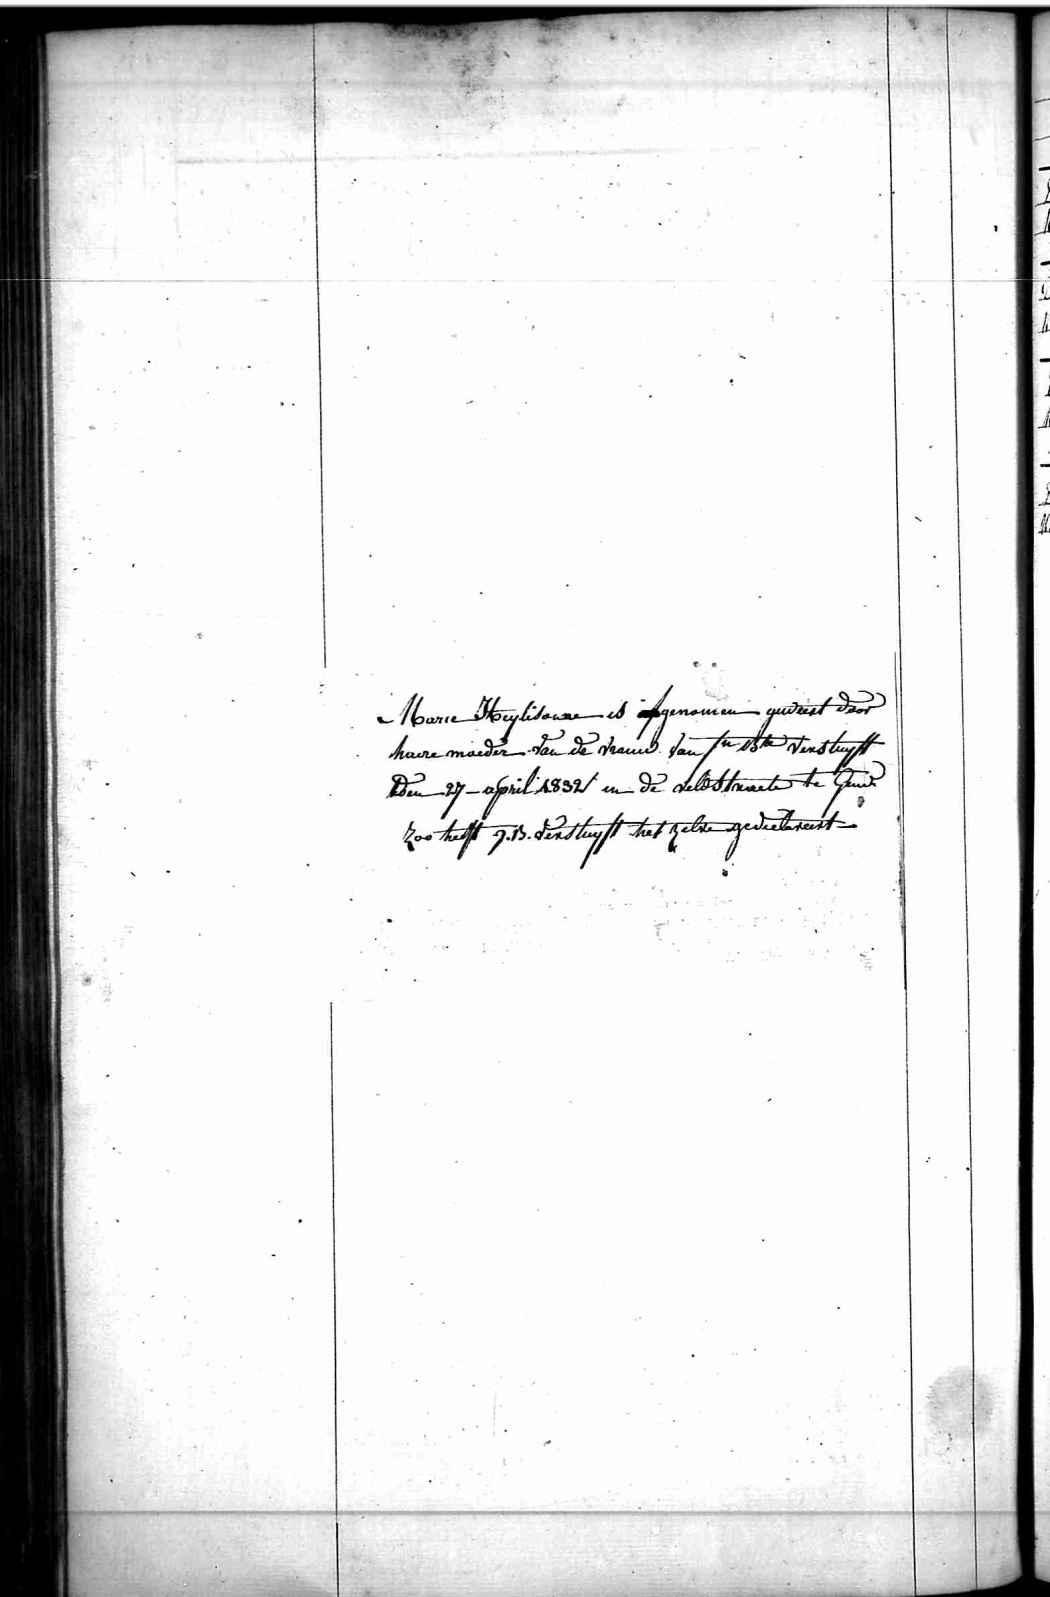 Marie Heylisonne is afgenomen geweest door
haere moeder van de vrauw van Jn Bte Verstuyft
den 27 april 1832 in de veldstraete te Gend
zoo heeft J. B. Verstuyft het zelve gedeclareert